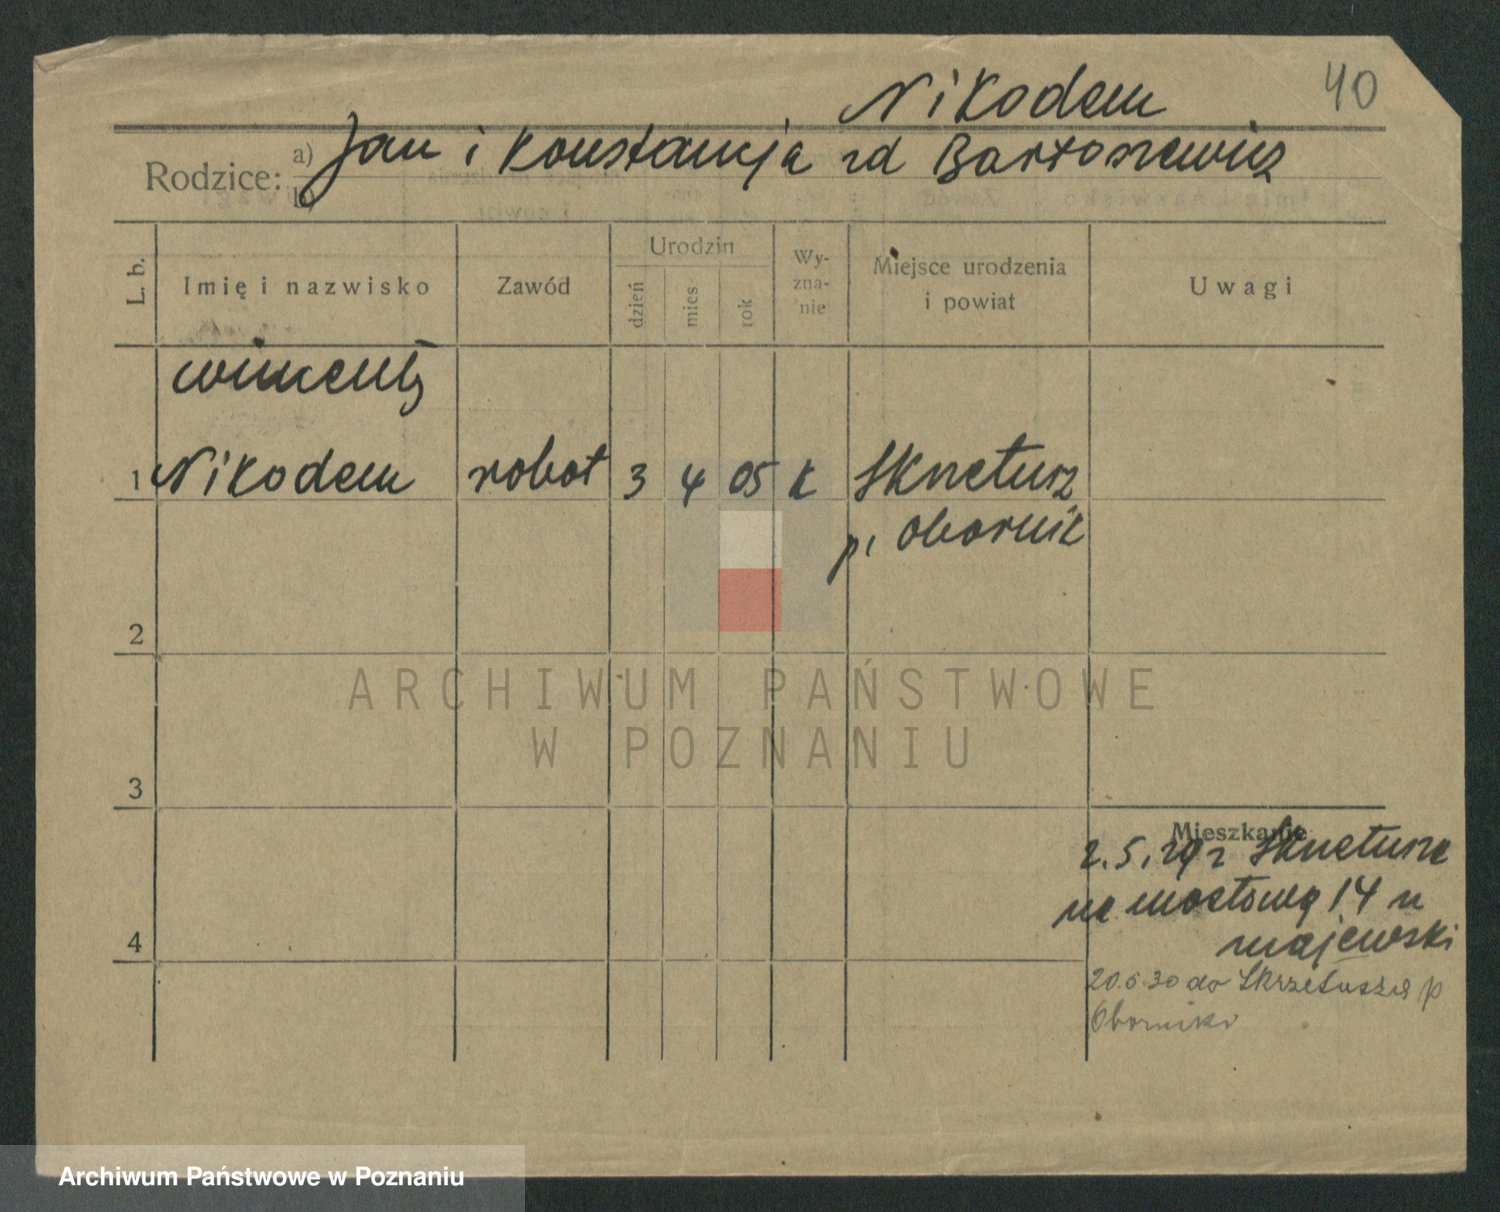 40
Nikodem
Rodzice: a) Jan i Konstancja zd Bartoszewicz
b)
L. b. Imię i nazwisko Zawód Urodzin dzień mies. rok Wy-zna-nie Miejsce urodzenia i powiat Uwagi
Wincenty
1 Nikodem robot 3 4 05 k Skrzetusz
p. Obornik
2
ARCHIWUM PAŃSTWOWE
W POZNANIU
3
Mieszkanie
2.5.29 z Skrzetusza
na Mostową 14 u
Majewski
4
20.6.30 do Skrzetusza p
Oborniki
Archiwum Państwowe w Poznaniu